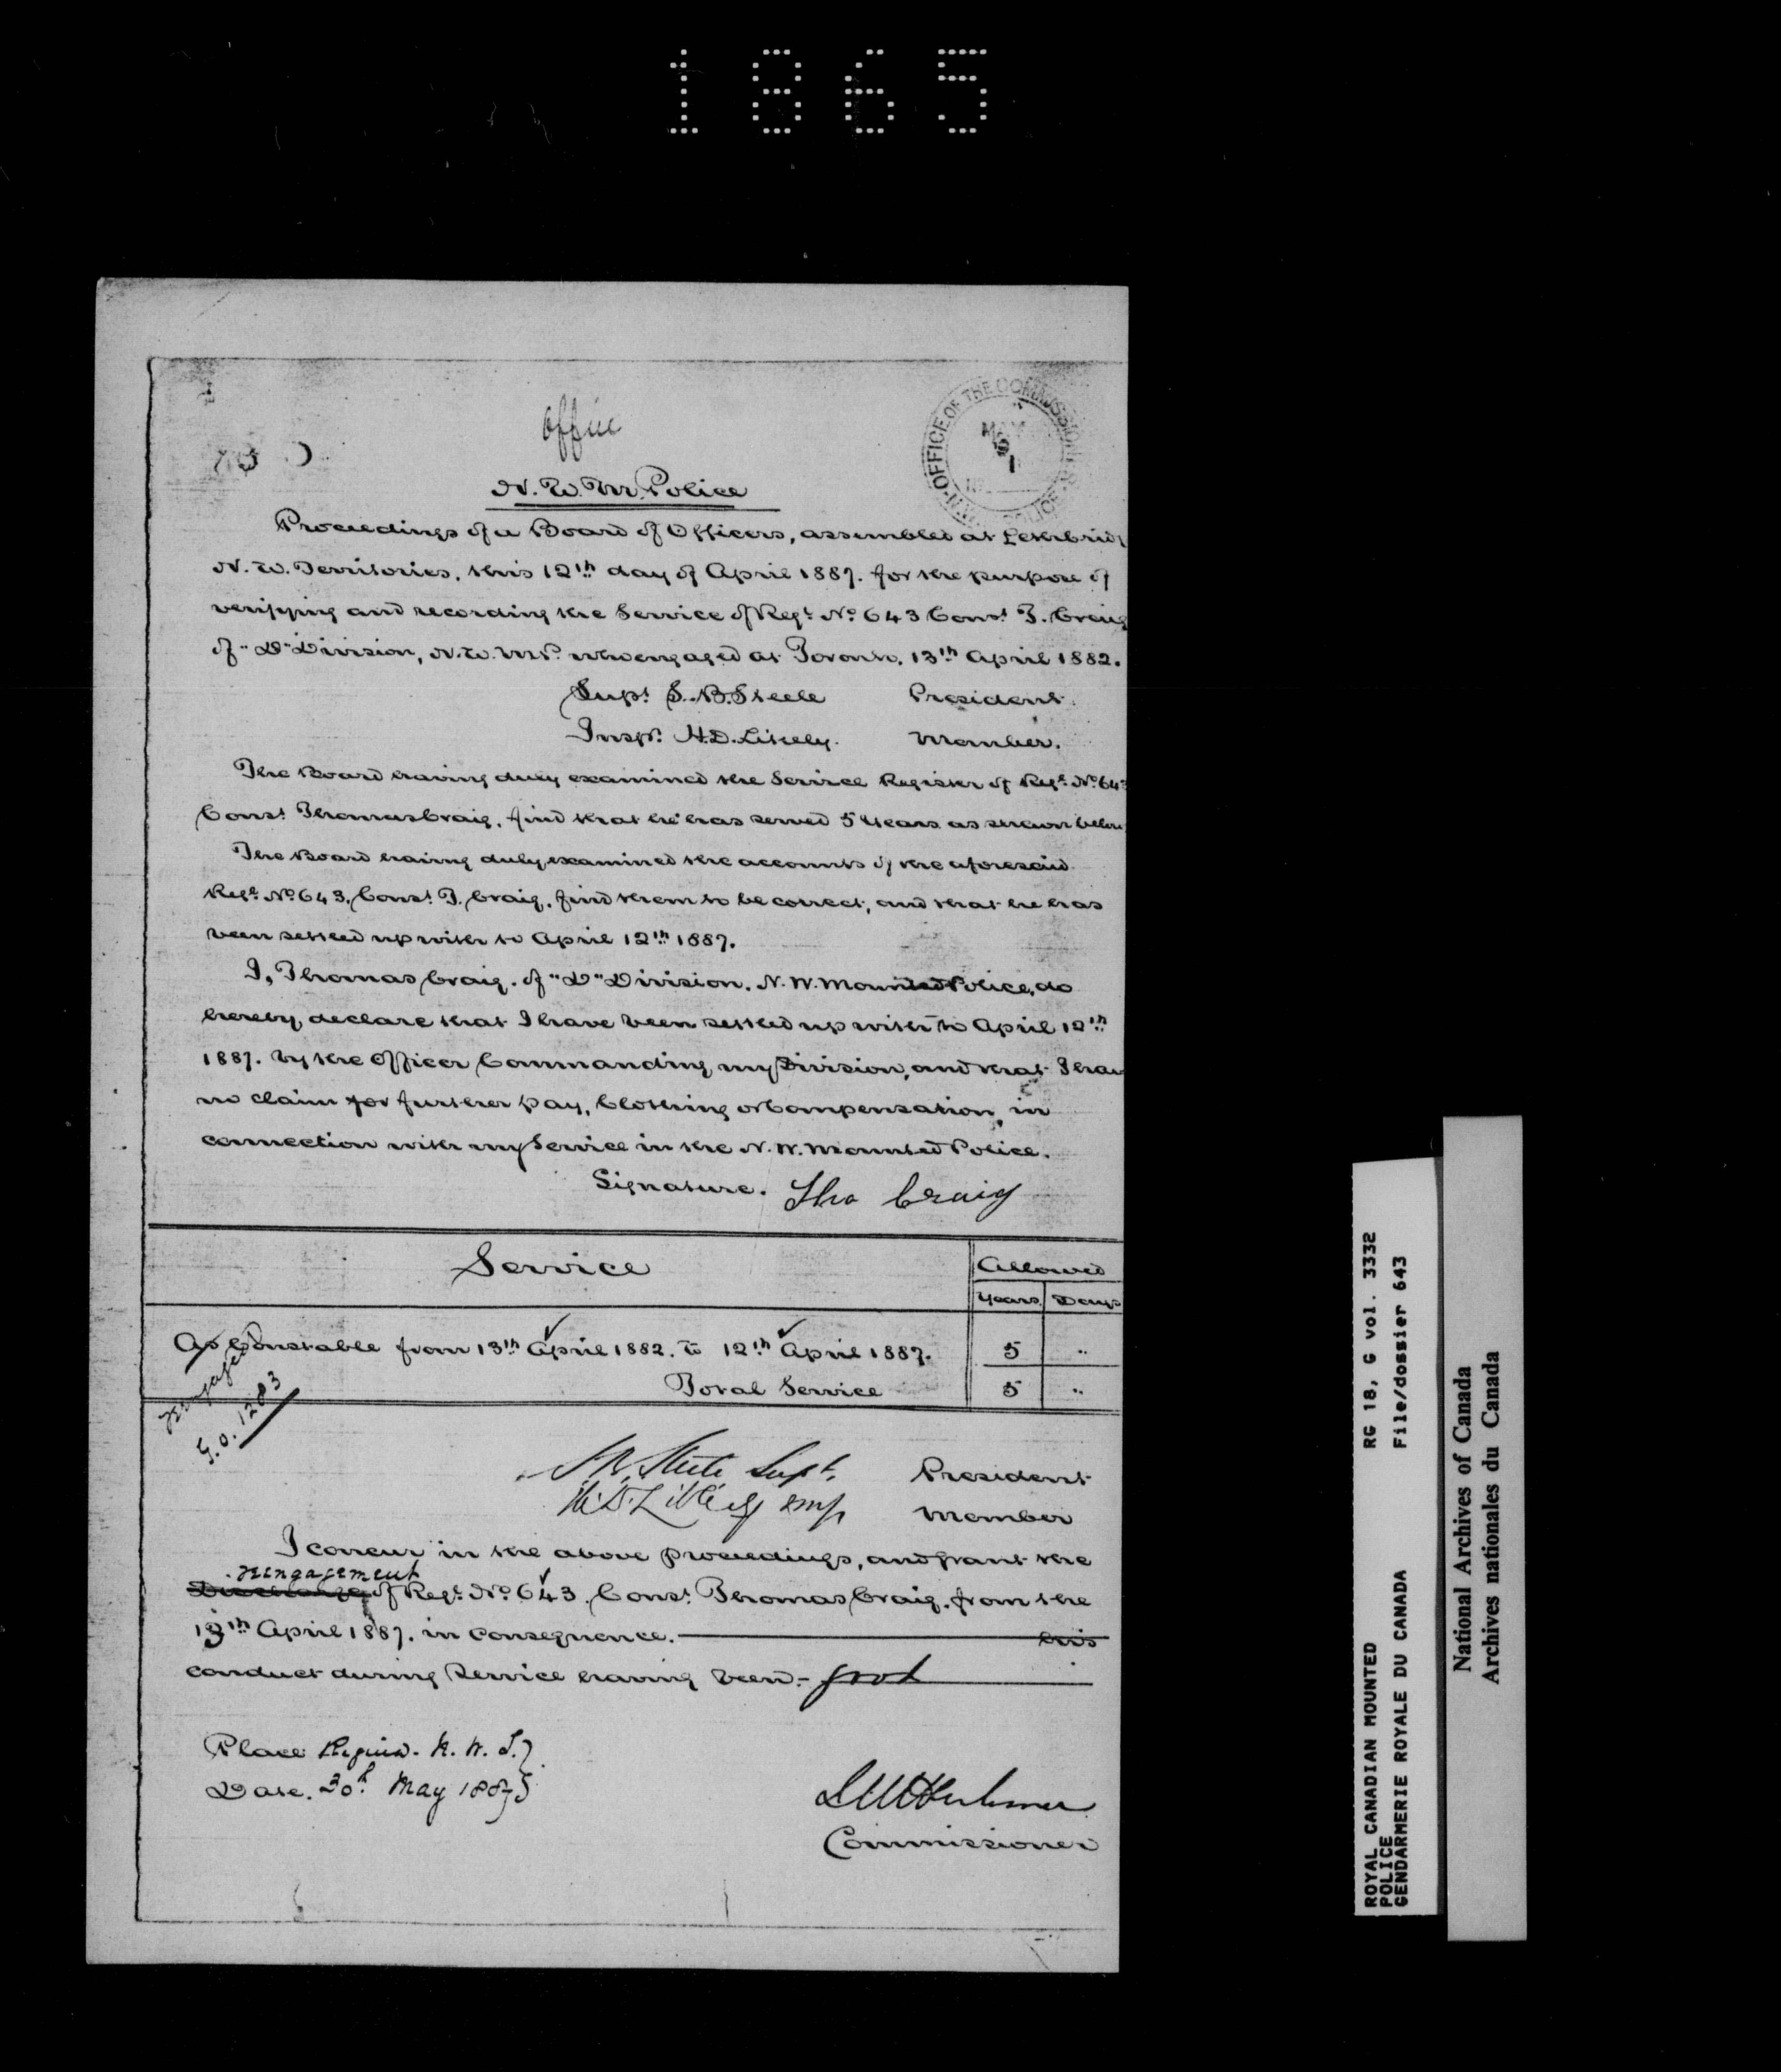 1865
Office
OFFICE OF THE COMMISSION
MAY
POLICE
N. W. M. Police
Proceedings of a Board of Officers, assembled at Lethbrid
N. W. Territories, this 12th day of April 1887. for the purpose of
verifying and recording the Service of Regt. No. 643 Const. T. Craig
of "D" Division, N.W.M.P. who engaged at Toronto, 13th April 1882.
Supt. S. B. Steele President.
Insp. H. D. Likely. Member.
The Board having duly examined the Service Register of Regt. No. 643
Const. Thomas Craig, find that he has served 5 Years as shewn below
The Board having duly examined the accounts of the aforesaid
Regt. No. 643, Const. T. Craig, find them to be correct, and that he has
been settled up with to April 12th 1887.
I, Thomas Craig. of "D" Division. N. W. Mounted Police, do
hereby declare that I have been settled up with to April 12th
1887. by the Officer Commanding my Division, and that I have
no claim for further Pay, Clothing or Compensation, in
connection with my Service in the N. W. Mounted Police.
Signature. Tho Craig
Service Allowed
Years Days
As Constable from 13th April 1882. to 12th April 1887. 5 "
Total Service 5 "
G.O. 1283
S B Steele Supt. President
H. D. Likely Insp Member
I concur in the above proceedings, and grant the
reengagement
Discharge of Regt. No. 643. Const. Thomas Craig. from the
13th April 1887. in consequence. his
conduct during Service having been:- good
Place Regina. N. W. T.
Date. 30th May 1887
L W Herchmer
Commissioner
ROYAL CANADIAN MOUNTED RG 18, G vol. 3332
POLICE
GENDARMERIE ROYALE DU CANADA File/dossier 643
National Archives of Canada
Archives nationales du Canada